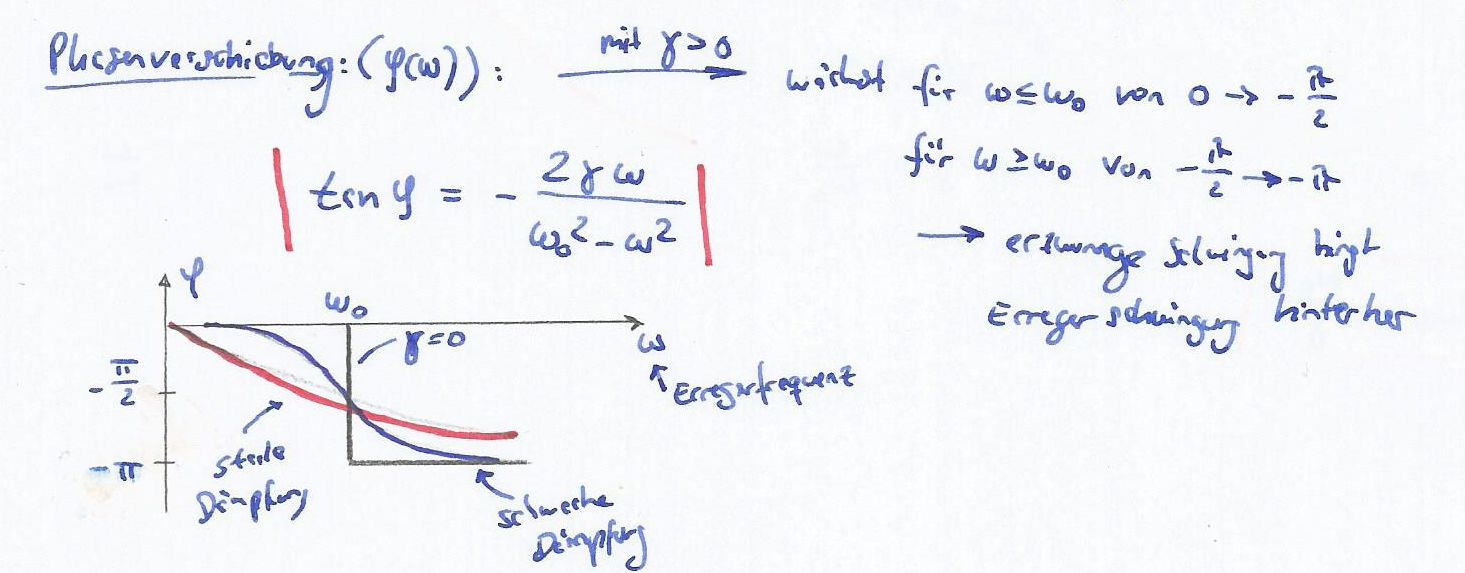 Phasenverschiebung: (φ(ω)): mit γ > 0 → wächst für ω ≤ ω₀ von 0 → - π/2
für ω ≥ ω₀ von - π/2 → - π
tan φ = - 2γω / (ω₀² - ω²)
→ erzwungene Schwingung hängt
Erregerschwingung hinterher
φ
ω₀
γ = 0
ω
↑ Erregerfrequenz
- π/2
- π
starke
Dämpfung
schwache
Dämpfung